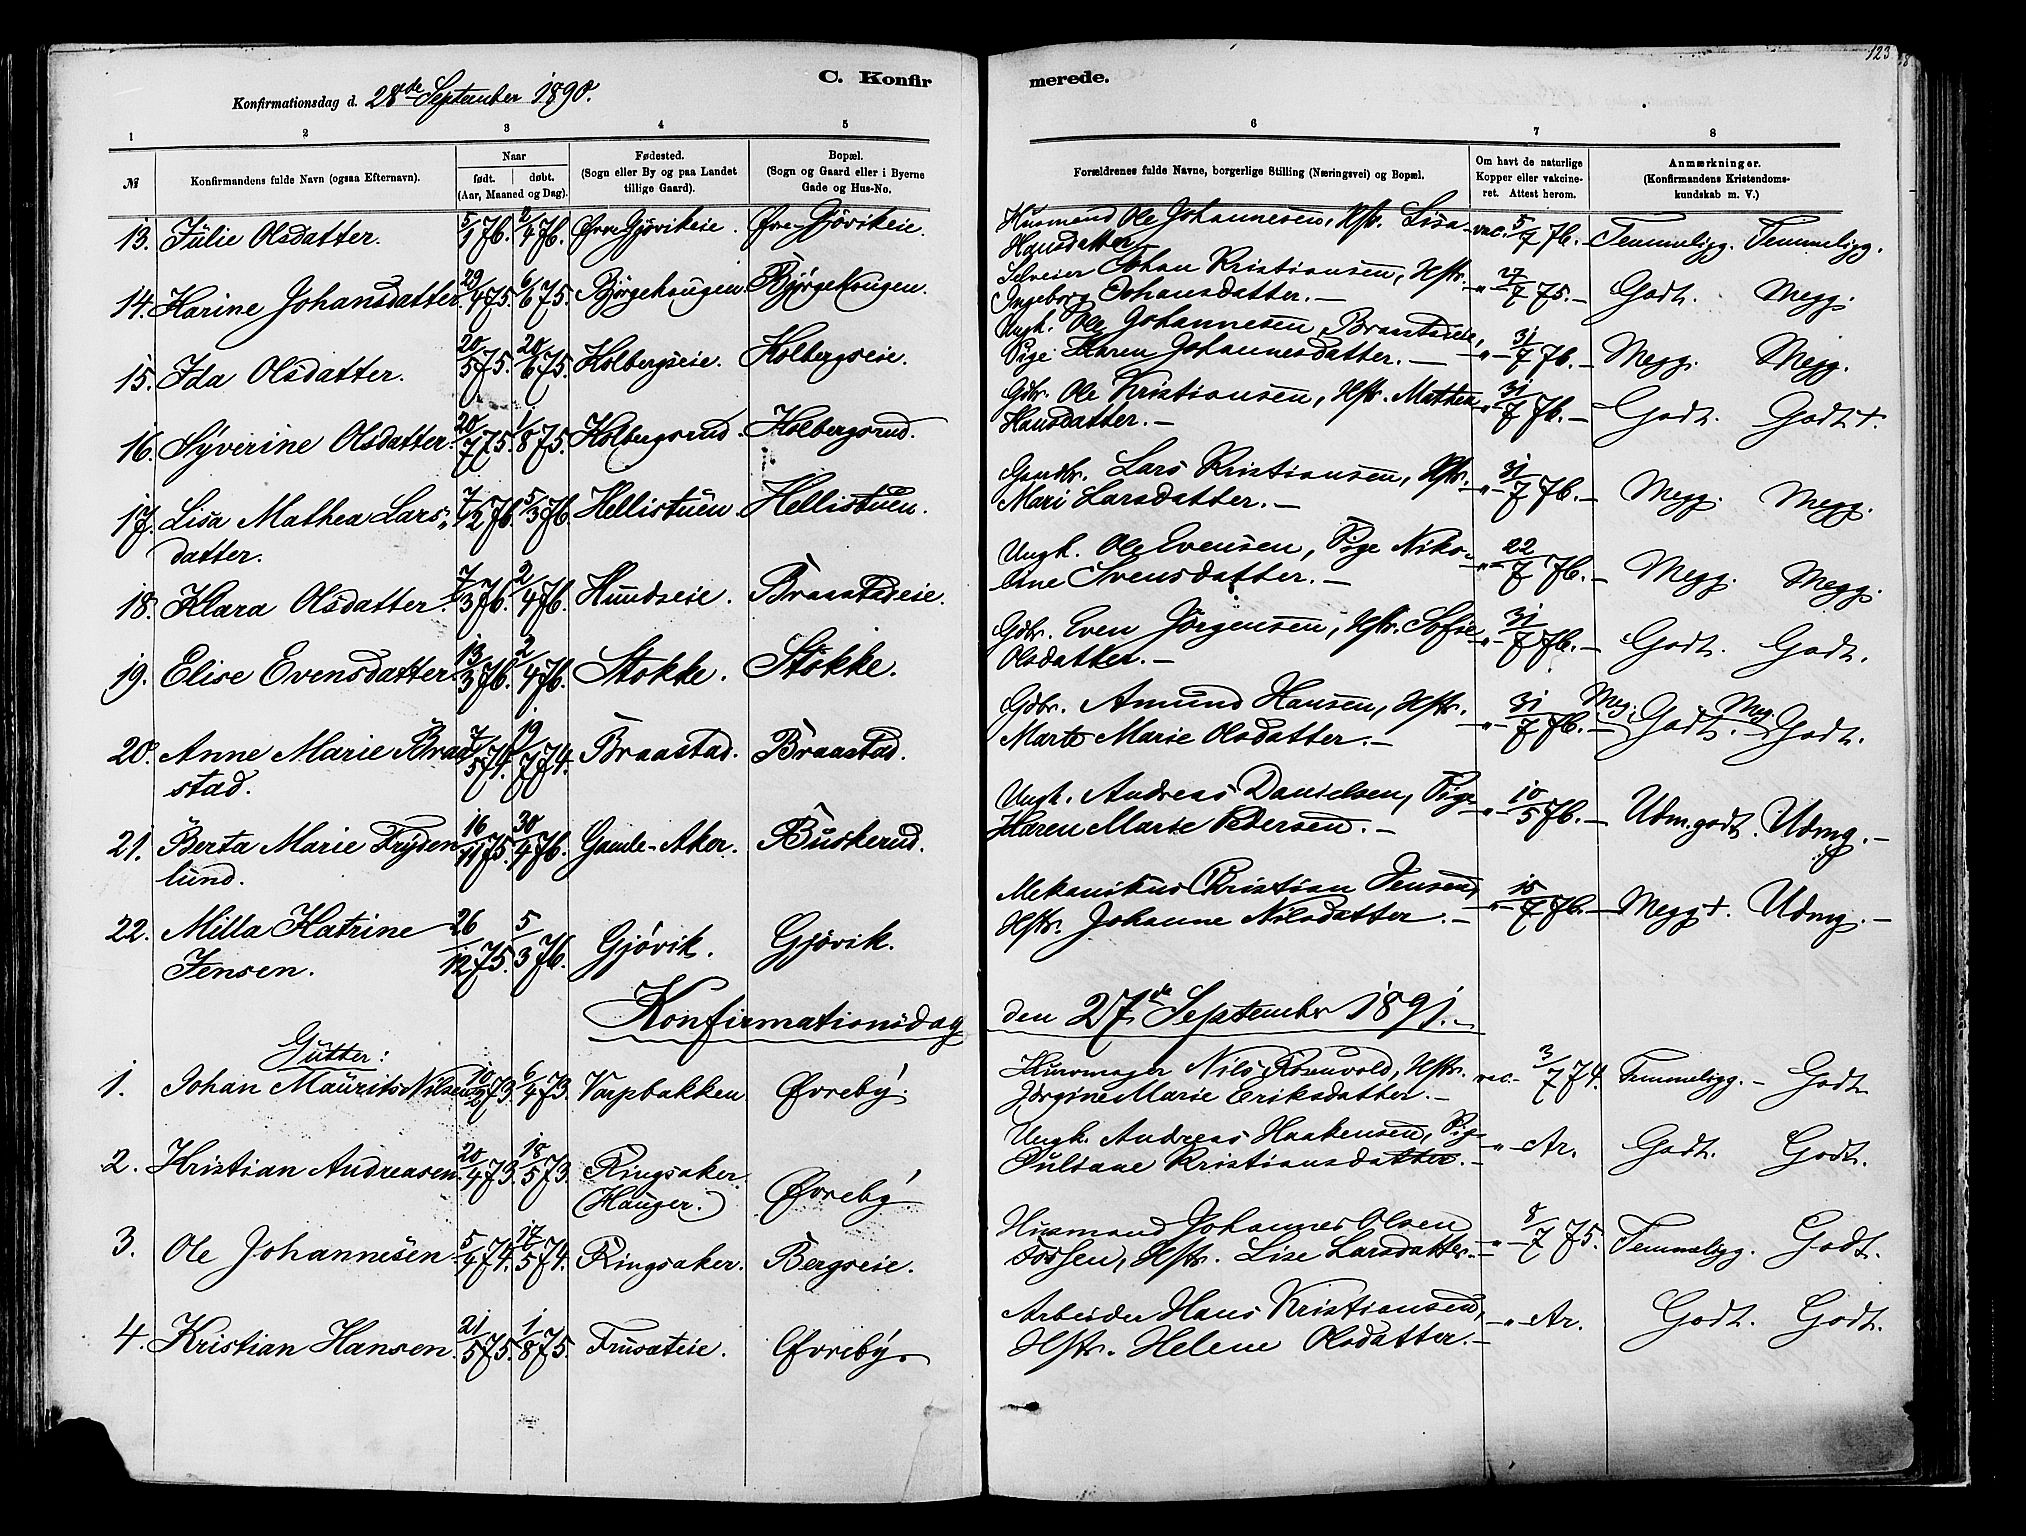 123
C. Konfirmerede.
Konfirmationsdag d. 28de September 1890.
1 2 3 4 5 6 7 8
№ Konfirmandens fulde Navn (ogsaa Efternavn). Naar født. døbt. (Aar, Maaned og Dag). Fødested. (Sogn eller By og paa Landet tillige Gaard). Bopæl. (Sogn og Gaard eller i Byerne Gade og Hus-No. Forældrenes fulde Navne, borgerlige Stilling (Næringsvei) og Bopæl. Om havt de naturlige Kopper eller vakcineret. Attest herom. Anmærkninger. (Konfirmandens Kristendomskundskab m. V.)
13. Julie Olsdatter. 5/1 76. 2/4 76. Øvre Gjøvikeie. Øvre Gjøvikeie. Husmand Ole Johannesen, Hstr. Lisa Hansdatter vac. 5/7 76.- Temmeligg. Temmeligg.
14. Karine Johansdatter 29/4 75. 6/6 75. Bjørgehaugen. Bjørgehaugen. Selveier Johan Kristiansen, Hstr. Ingeborg Johansdatter.- -"- 27/7 75.- Godt. Megg.
15. Ida Olsdatter. 20/5 75. 20/6 75. Kolbergseie. Kolbergseie. Ungk. Ole Johannesen Braastadeie, Pige Karen Johannesdatter.- -"- 31/7 76.- Megg. Megg.
16. Syverine Olsdatter. 20/7 75. 1/8 75. Kolbergsrud. Kolbergsrud. Gdbr. Ole Kristiansen, Hstr. Mathea Hansdatter.- -"- 31/7 76.- Godt. Godt+.
17. Lisa Mathea Larsdatter. 7/2 76. 5/3 76. Hellistuen. Hellistuen. Gaardbr. Lars Kristiansen, Hstr. Mari Larsdatter.- -"- 31/7 76.- Megg. Megg.
18. Klara Olsdatter. 7/3 76. 2/4 76. Hundseie. Braastadeie. Ungk. Ole Evensen, Pige Nikoline Svensdatter.- -"- 22/7 76.- Megg. Megg.
19. Elise Evensdatter. 13/3 76. 2/4 76. Stokke. Stokke. Gdbr. Even Jørgensen, Hstr. Sofie Olsdatter.- -"- 31/7 76.- Godt. Godt.
20. Anne Marie Braastad. 7/5 74. 19/7 74. Braastad. Braastad. Gdbr. Amund Hansen, Hstr. Marte Marie Olsdatter.- -"- 31/7 76.- Meg. Godt. Meg Godt.
21. Berta Marie Frydenlund. 16/11 75. 30/4 76. Gamle-Aker. Buskerud. Ungk. Andreas Danielsen, Pige Karen Marie Pedersen.- -"- 10/5 76.- Udm.godt. Udmg.-
22. Milla Katrine Jensen. 26/12 75. 5/3 76. Gjøvik. Gjøvik. Mekanikus Christian Jensen, Hstr. Johanne Nilsdatter.- -"- 15/7 76.- Megg+. Udmg.-
Konfirmationsdag den 27de September 1891.-
Gutter:
1. Johan Maurits Nilsen 10/2 73. 6/4 73. Varpbakken Øvreby. Nils Rosnvold, Hstr. Jørgine Marie Eriksdatter.- vac.- 3/7 74. Temmeligg.- Godt
2. Kristian Andreasen. 20/4 73. 18/5 73. Ringsaker. (Hauger.) Øvreby. Ungk. Andreas Haakensen, Pige Juliane Kristiansdatter.- " Ar. Godt. Godt.
3. Ole Johannesen. 5/4 74. 17/5 74. Ringsaker. Bergseie. Husmand Johannes Olsen Fossen, Hstr. Lise Larsdatter.- -"- 8/7 75. Temmeligg. Godt.
4. Kristian Hansen. 21/5 75. 1/8 75. Frusateie. Øvreby. Arbeider Hans Kristiansen, Hstr. Helene Olsdatter.- -"- Ar. Godt. Godt.